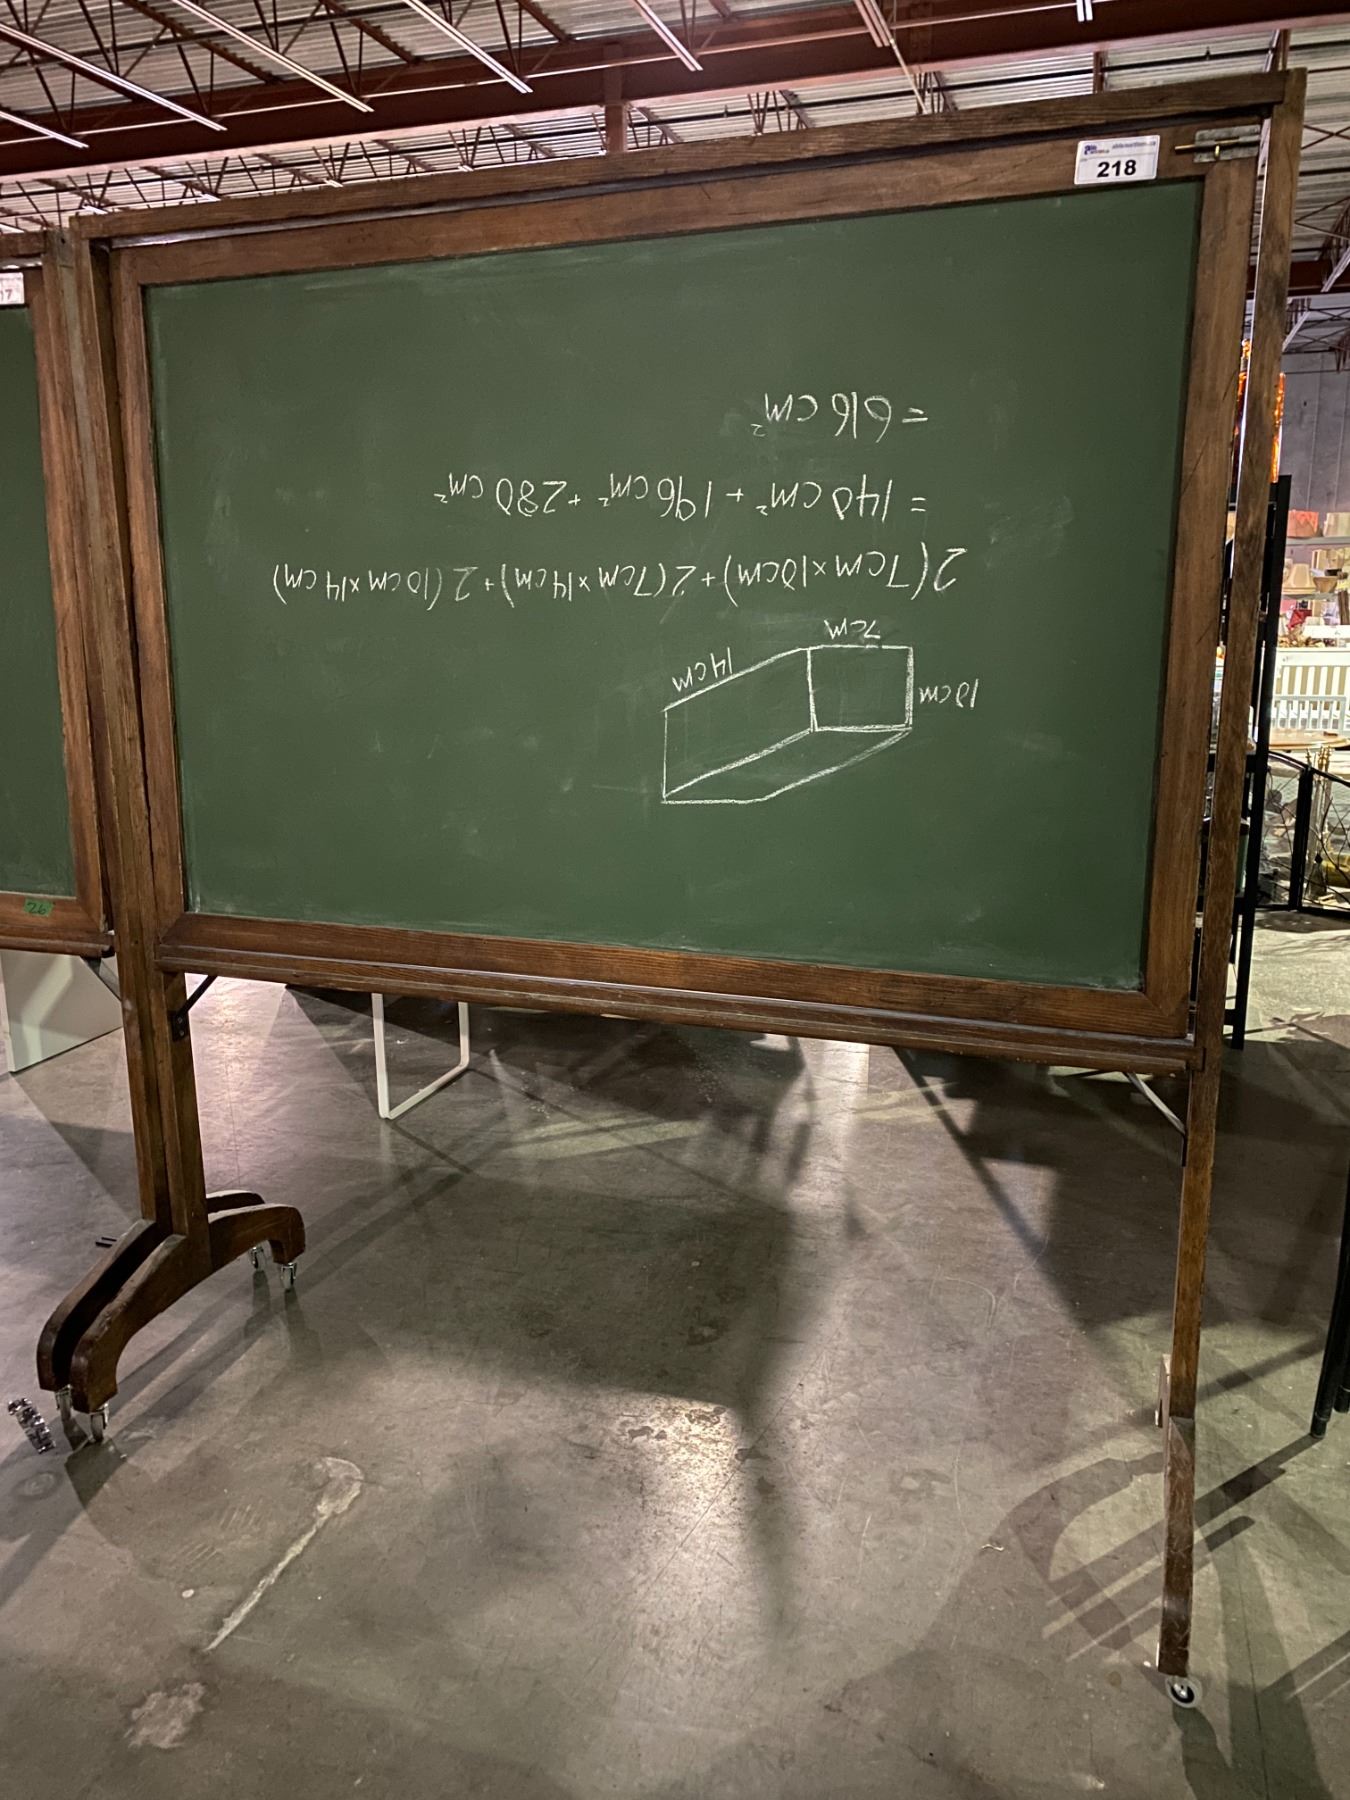 218
17
26
10cm
7cm
14cm
2(7cm×10cm)+2(7cm×14cm)+2(10cm×14cm)
= 140cm² + 196cm² + 280cm²
= 616cm²